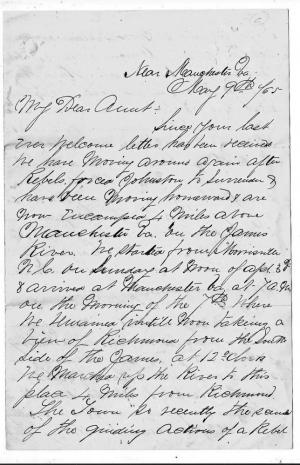 Near Manchester Va
May 9th /65
My Dear Aunt:
Since your last
ever welcome letter has been received
we have moving around again after
Rebels, forced Johnston to Surrender &
have been moving homeward & are
now encamped 4 miles above
Manchester Va. on the James
River. We started from Morrisville
N.C. on Sunday at noon of Apl. 30th
& arrived at Manchester Va, at 7 A.M.
on the morning of the 7th, where
we remained untill noon taking a
view of Richmond from the South
side of the James, at 12 O'clock
we marched up the River to this
place 4 miles from Richmond.
The Town so recently the scene
of the guiding actions of a Rebel